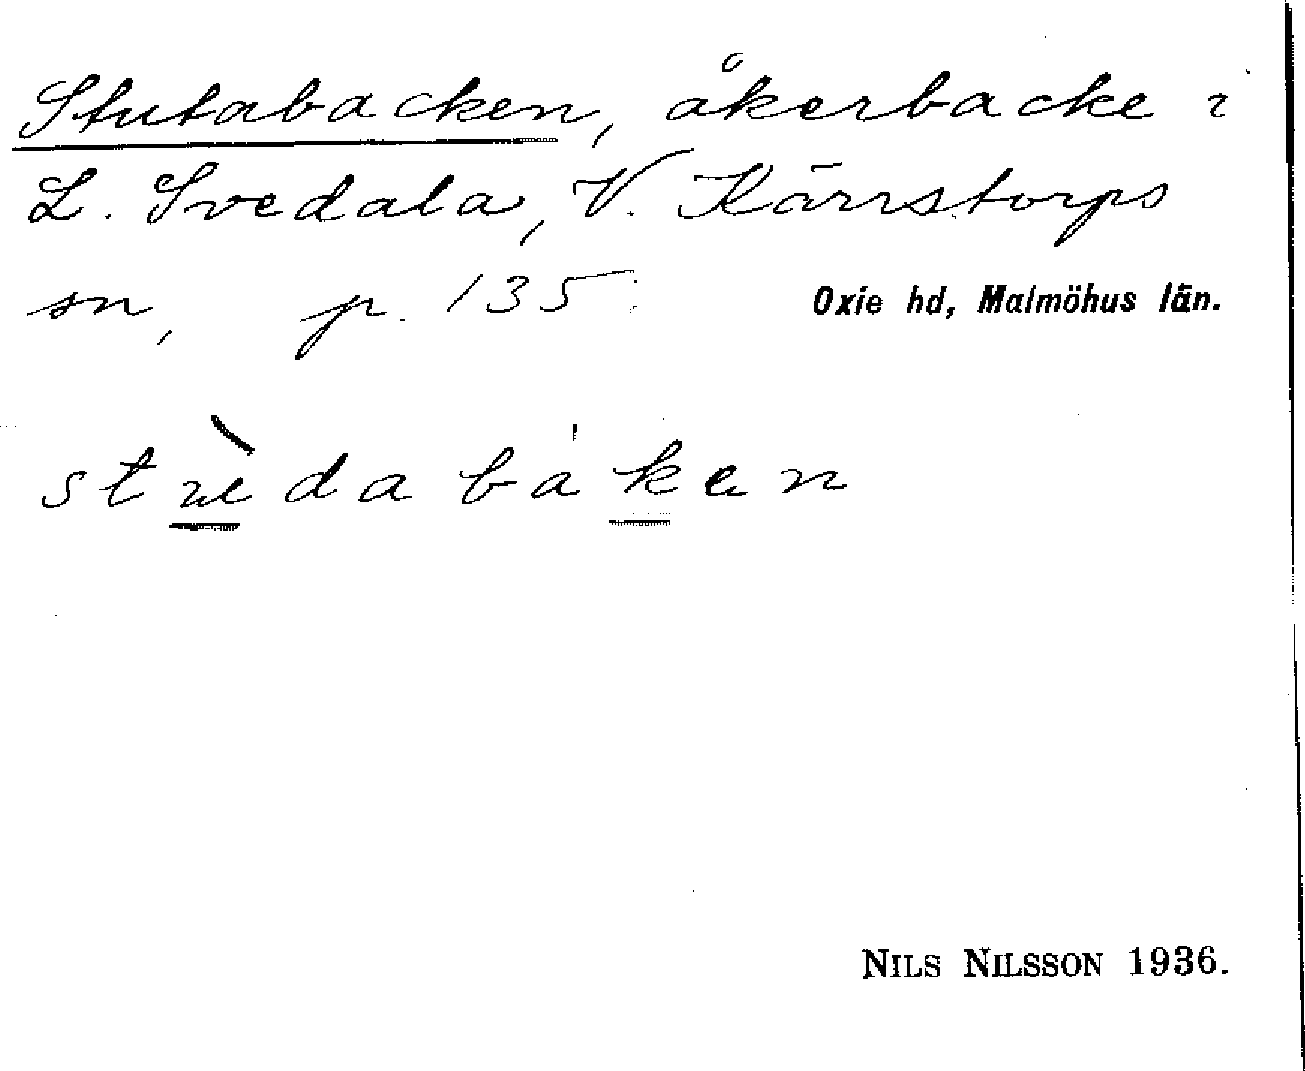 Stutabacken, åkerbacke i
L. Svedala, V. Kärrstorps
sn, p. 135. Oxie hd, Malmöhus län.
NILS NILSSON 1936.